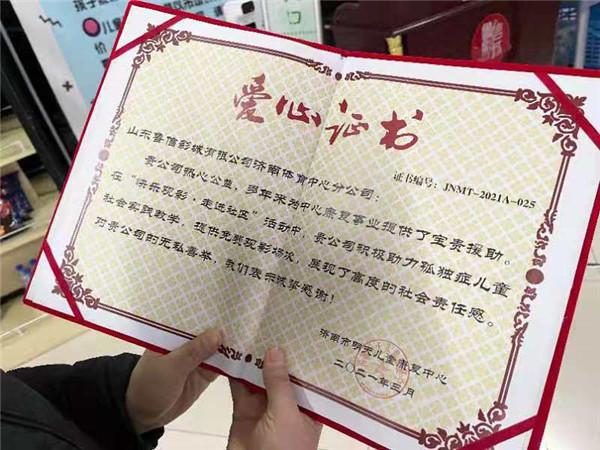 爱心证书
证书编号：JNMT-2021A-025
山东鲁信影城有限公司济南体育中心分公司：
贵公司热心公益，多年来为中心康复事业提供了宝贵援助。
在“快乐观影·走进社区”活动中，贵公司积极助力孤独症儿童
社会实践教学，提供免费观影场次，展现了高度的社会责任感。
对贵公司的无私善举，我们表示诚挚感谢！
济南市明天儿童康复中心
二〇二一年三月